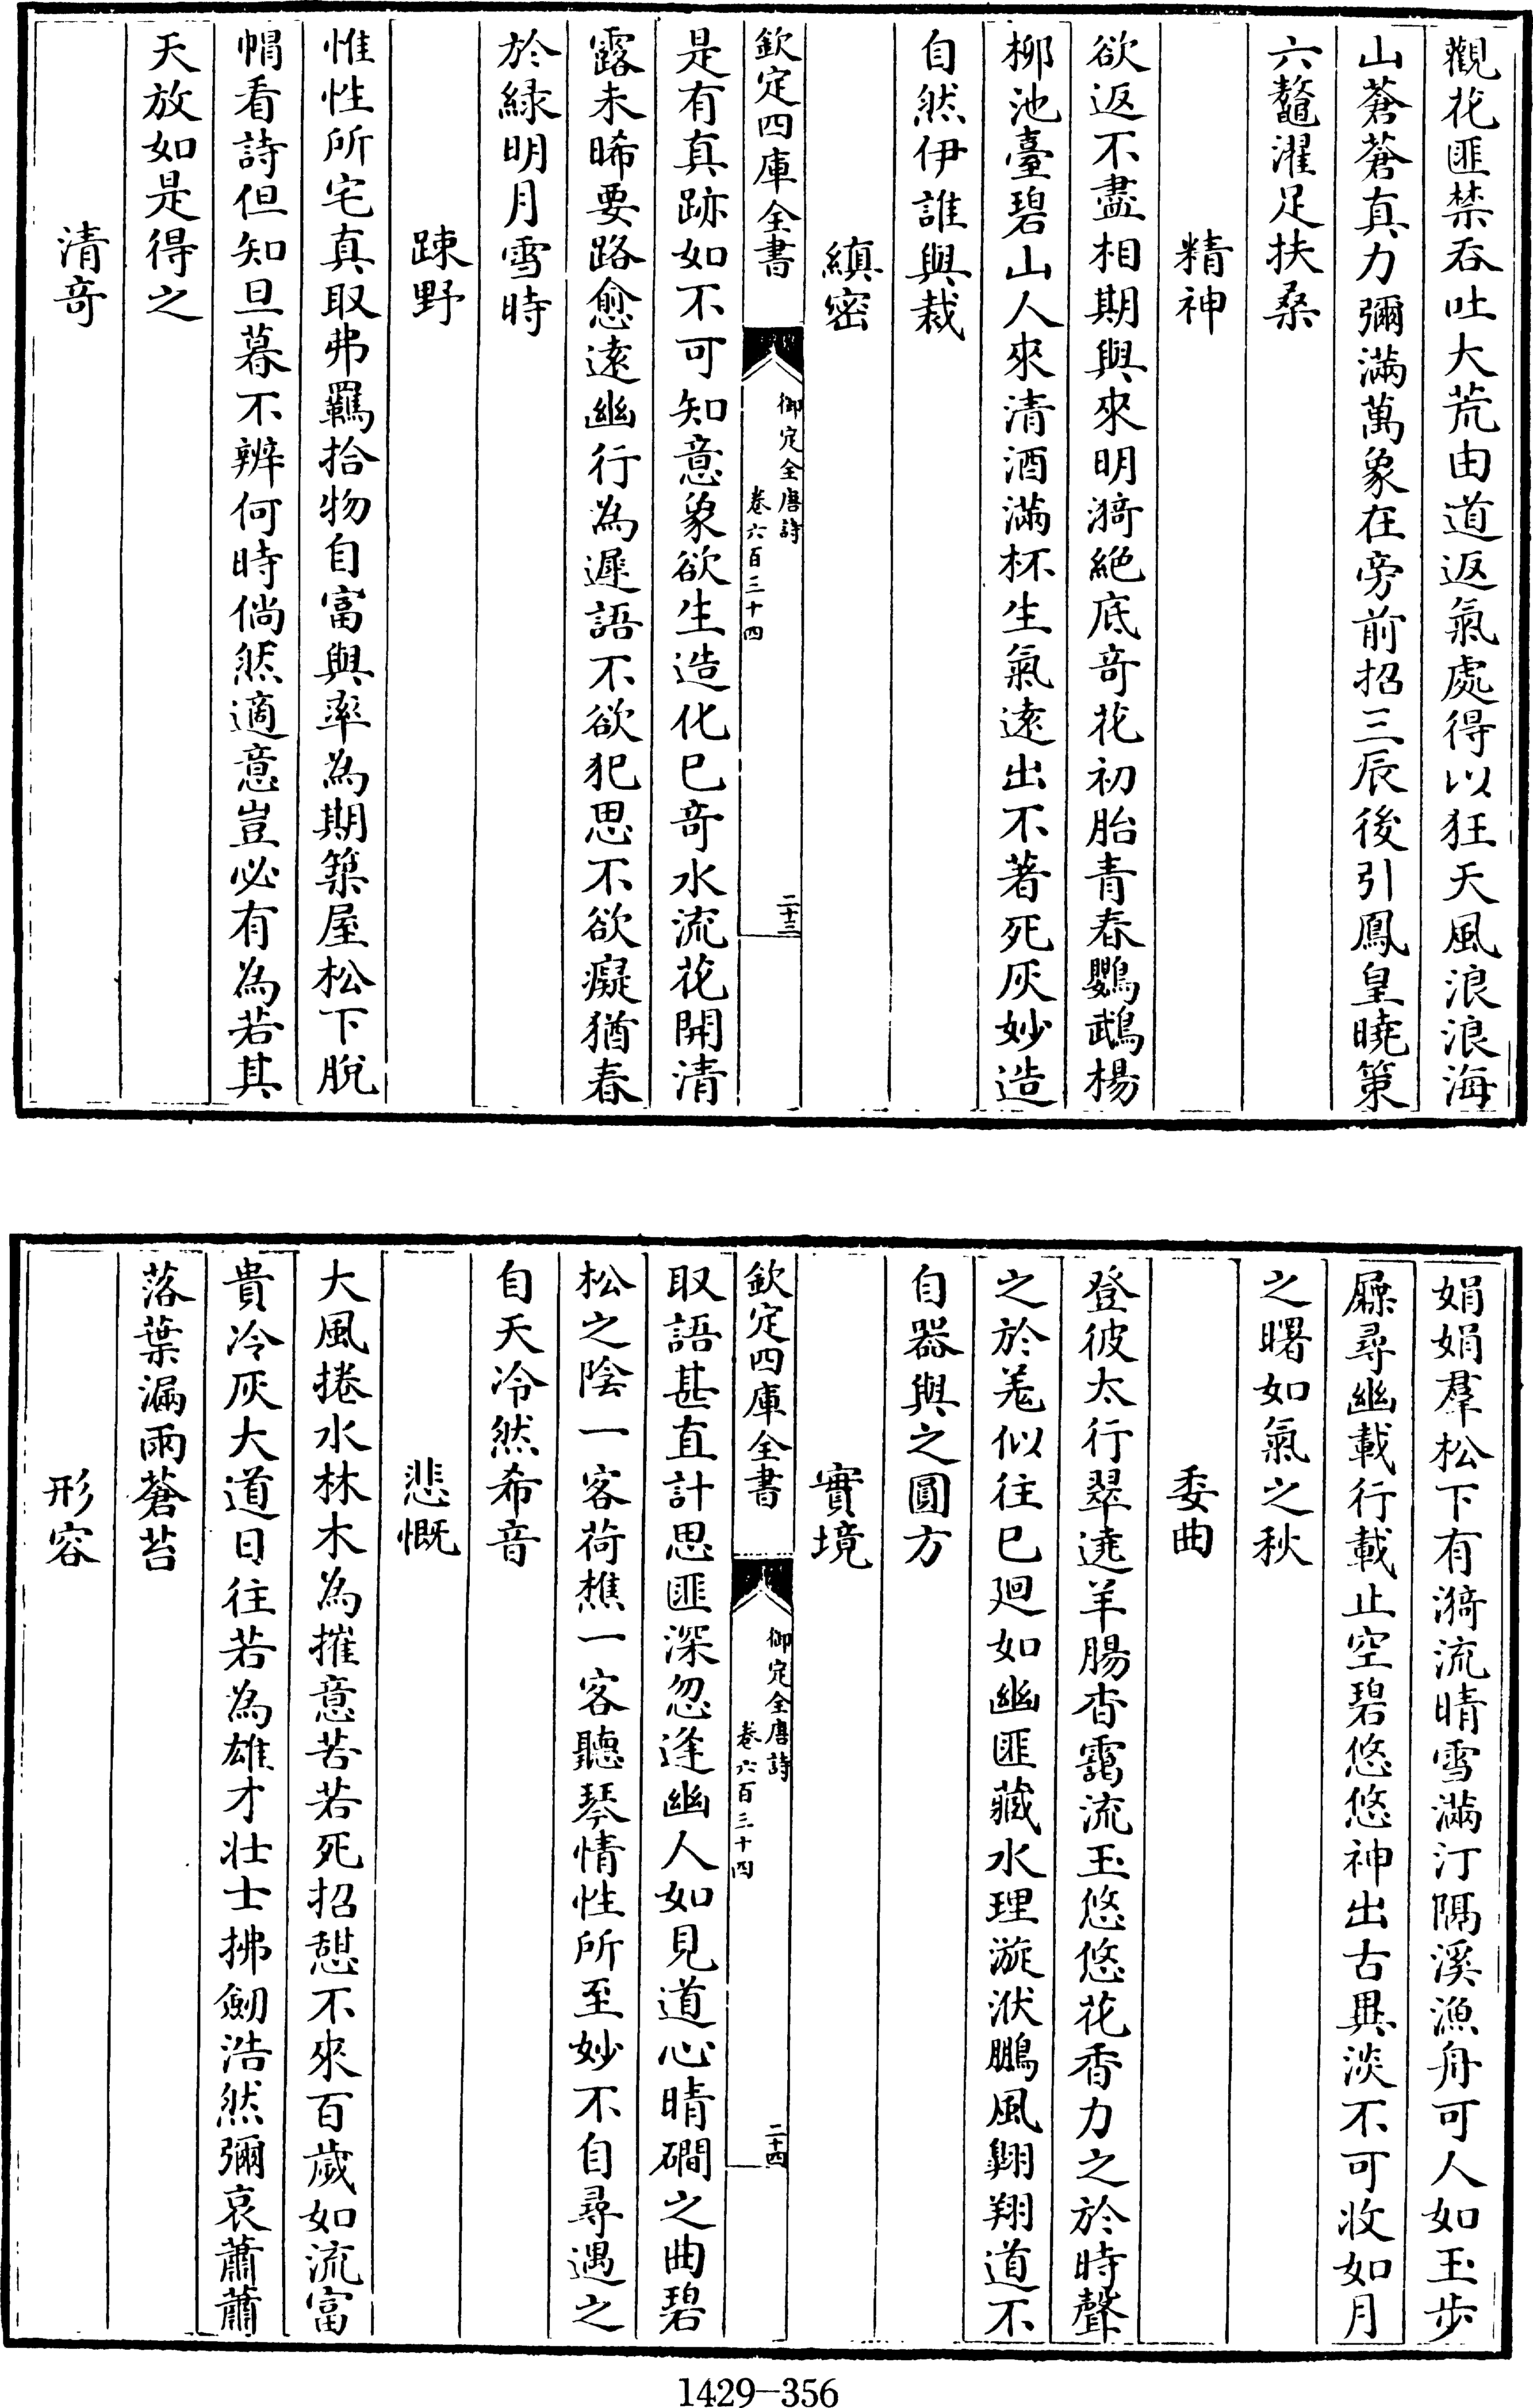 觀花匪禁吞吐大荒由道返氣處得以狂天風浪浪海
山蒼蒼真力彌滿萬象在旁前招三辰後引鳳皇曉策
六鼇濯足扶桑
精神
欲返不盡相期與來明漪絶底竒花初胎青春鸚鵡楊
柳池臺碧山人來清酒滿杯生氣遠出不著死灰妙造
自然伊誰與裁
縝密
欽定四庫全書
御定全唐詩
卷六百三十四
二十三
是有真跡如不可知意象欲生造化已竒水流花開清
露未晞要路愈遠幽行為遲語不欲犯思不欲癡猶春
於緑明月雪時
疎野
惟性所宅真取弗羈拾物自富與率為期築屋松下脫
帽看詩但知旦暮不辨何時倘然適意豈必有為若其
天放如是得之
清竒
娟娟羣松下有漪流晴雪滿汀隔溪漁舟可人如玉步
屧尋幽載行載止空碧悠悠神出古異淡不可收如月
之曙如氣之秋
委曲
登彼太行翠遶羊腸杳靄流玉悠悠花香力之於時聲
之於羗似往已廻如幽匪藏水理漩洑鵬風翺翔道不
自器與之圓方
實境
欽定四庫全書
御定全唐詩
卷六百三十四
二十四
取語甚直計思匪深忽逢幽人如見道心晴磵之曲碧
松之陰一客荷樵一客聽琴情性所至妙不自尋遇之
自天冷然希音
悲慨
大風捲水林木為摧意苦若死招憇不來百歲如流富
貴冷灰大道日往若為雄才壯士拂劒浩然彌哀蕭蕭
落葉漏雨蒼苔
形容
1429-356